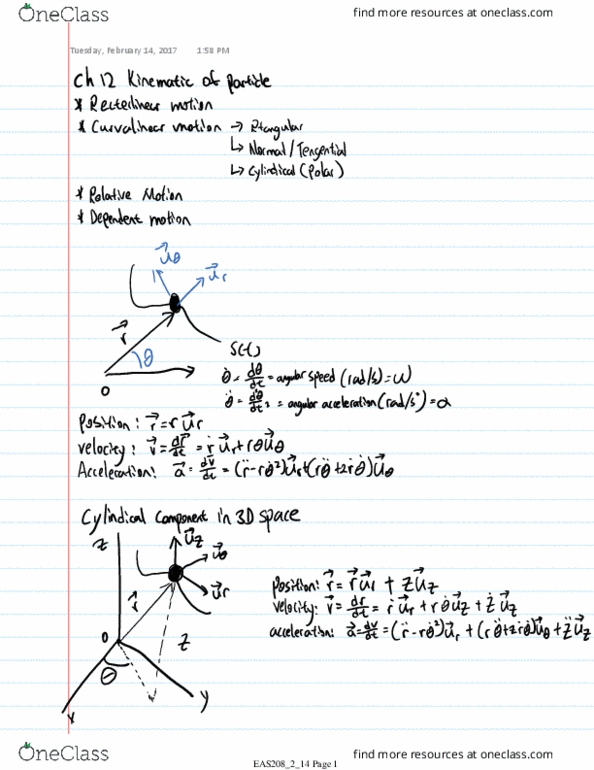 OneClass
find more resources at oneclass.com
Tuesday, February 14, 2017 1:58 PM
Ch 12 Kinematic of Particle
* Recterlinear motion
* Curvalinear motion → Rtangular
↳ Normal/Tengential
↳ Cylindical (Polar)
* Relative Motion
* Dependent motion
u⃗θ
u⃗r
r⃗
θ
O
S(t)
θ̇ = dθ/dt = angular speed (rad/s) = ω
θ̈ = d²θ/dt² = angular acceleration (rad/s²) = α
Position : r⃗ = r u⃗r
Velocity : v⃗ = dr⃗/dt = ṙ u⃗r + rθ̇ u⃗θ
Acceleration: a⃗ = dv⃗/dt = (r̈ - rθ̇²) u⃗r + (rθ̈ + 2ṙθ̇) u⃗θ
Cylindical Component in 3D space
z
u⃗z
u⃗θ
u⃗r
r⃗
O
z
θ
x
y
Position: r⃗ = r u⃗r + z u⃗z
velocity: v⃗ = dr/dt = ṙ u⃗r + r θ̇ u⃗z + ż u⃗z
acceleration: a⃗ = dv/dt = (r̈ - rθ̇²) u⃗r + (rθ̈ + 2ṙθ̇) u⃗θ + z̈ u⃗z
OneClass
find more resources at oneclass.com
EAS208_2_14 Page 1